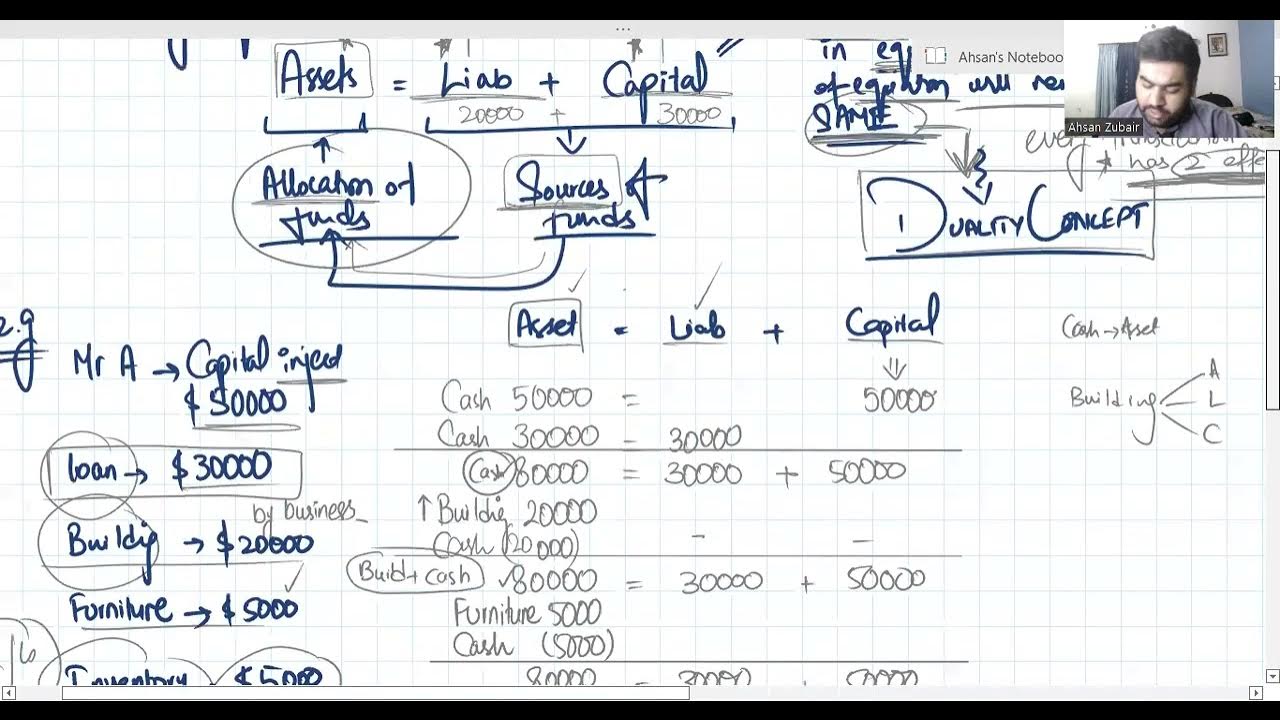 ...
in eq
Ahsan's Noteboo
Assets = Liab + Capital
of equation will
20000 + 30000
SAME
Ahsan Zubair
every
has 2 effe
Allocation of funds
Sources of funds
DUALITY CONCEPT
e.g
Asset = Liab + Capital
Cash → Asset
Mr A → Capital inject
$ 50000
Cash 50000 = 50000
Building
A
L
C
Cash 30000 = 30000
loan → $ 30000
Cash 80000 = 30000 + 50000
by business
↑ Buildig 20000
Buildig → $ 20000
Cash (20000) - -
Build + cash 80000 = 30000 + 50000
Furniture → $ 5000
Furniture 5000
Cash (5000)
Inventory $ 5000
80000 = 30000 + 50000